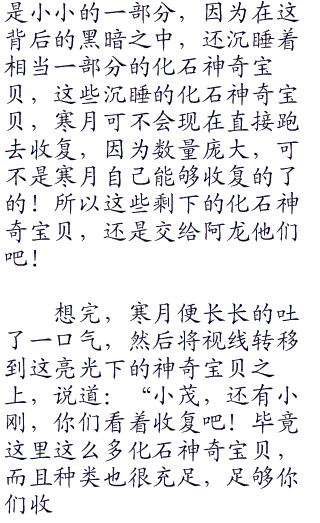 是小小的一部分，因为在这
背后的黑暗之中，还沉睡着
相当一部分的化石神奇宝
贝，这些沉睡的化石神奇宝
贝，寒月可不会现在直接跑
去收复，因为数量庞大，可
不是寒月自己能够收复的了
的！所以这些剩下的化石神
奇宝贝，还是交给阿龙他们
吧！
想完，寒月便长长的吐
了一口气，然后将视线转移
到这亮光下的神奇宝贝之
上，说道：“小茂，还有小
刚，你们看着收复吧！毕竟
这里这么多化石神奇宝贝，
而且种类也很充足，足够你
们收